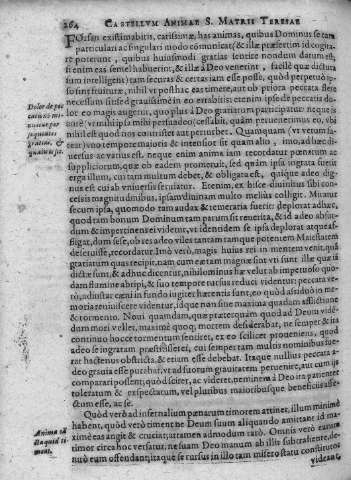 264 CASTELLVM ANIMAE S. MATRIS TERESIAE
FOrsan existimabitis, carissimæ, has animas, quibus Dominus se tam
particulari ac singulari modo comunicat (& illæ præsertim id cogita-
re poterunt, quibus huiusmodi gratias
enim eas semel habuerint, & illæ à Deo venerint, facilè quæ dicta
sum intelligent) tam securas & certas iam esse posse, quòd perpetuò ip-
so sint fruituræ, nihil vt posthac eas timere, aut ob priora peccata flere
necessum sit: sed grauissimè in eo errabitis; etenim ipse de peccatis do-
lor eo magis augetur, quo plus à Deo gratiarum participatur: neque is
nihil est quod nos contristet aut perturbet. Quamquam (vt verum fa-
tear) vno tempore maior is & intensior sit quàm alio, imo, ad hæc di-
uersus ac varius est. neque enim anima iam recordatur pœnarum ac
suppliciorum, quæ ob eadem promeruit, sed quàm ipsa ingrata fuerit
erga illum, cui tam multum debet, & obligata est, quique adeo dig-
nus est cui ab vniuersis seruiatur. Etenim, ex hisce diuinitus sibi con-
cessis magnitudinibus, ipsam diuinam multo melius colligit. Miratur
secum ipsa, quomodo tam audax & temeraria fuerit: deplorat adhæc,
quod tam bonum Dominum tam parum sit reuerita, & id adeo absur-
dum & impertinens ei videtur, vt identidem se ipsa deplorat atque af-
fligat, dum sese, ob res adeo viles tantam tamque potentem Maiestatem
deseruisse, recordatur. Imò verò, magis huius rei in mentem venit, quàm
gratiarum quas recipit, nam cum eæ tam magnæ sint vti sunt illæ quæ iã
dictæ sunt, & adhuc dicentur, nihilominus hæ velut ab impetuoso quo-
dam flumine abripi, & suo tempore rursus reduci videntur: peccata ve-
rò, ad instar cœni in fundo iugiter hærentis sunt, eo quòd assiduè in me-
moria reuiuiscere videntur, idque non sine maxima quadam afflictione
& tormento. Noui quamdam, quæ præterquam quod ad Deum viden-
dum mori vellet, maximè quoq; mortem desiderabat, ne semper & ita
continuo hocce tormentum sentiret, ex eo scilicet proueniens, quod
adeo se ingratam præstitisset ei, cui semper tam multis nominibus fue-
rat hactenus obstricta, & etiam esse debebat. Itaque nullius peccata a-
deo grauia esse putabat, vt ad suorum grauitatem peruenirent, aut cum iis
comparari possent, quòd sciret, ac videret, neminem à Deo ita patienter
toleratum & exspectatum, vel pluribus maioribusque beneficiis affe-
ctum esse, ac se.
Quòd verò ad infernalium pœnarum timorem attinet, illum minimè
habent, quòd verò timent ne Deum suum aliquando amittant id ma-
ximè eas angit & cruciat; attamen admodum rarò. Omnis verò earum
timor circa hoc versatur, ne suam Deo manum ab illis subtrahente, de-
nuò eum offendant, itaque se rursus in illo tam misero statu constitutos
videant,
Anima cõ
sta quid ti-
meat.